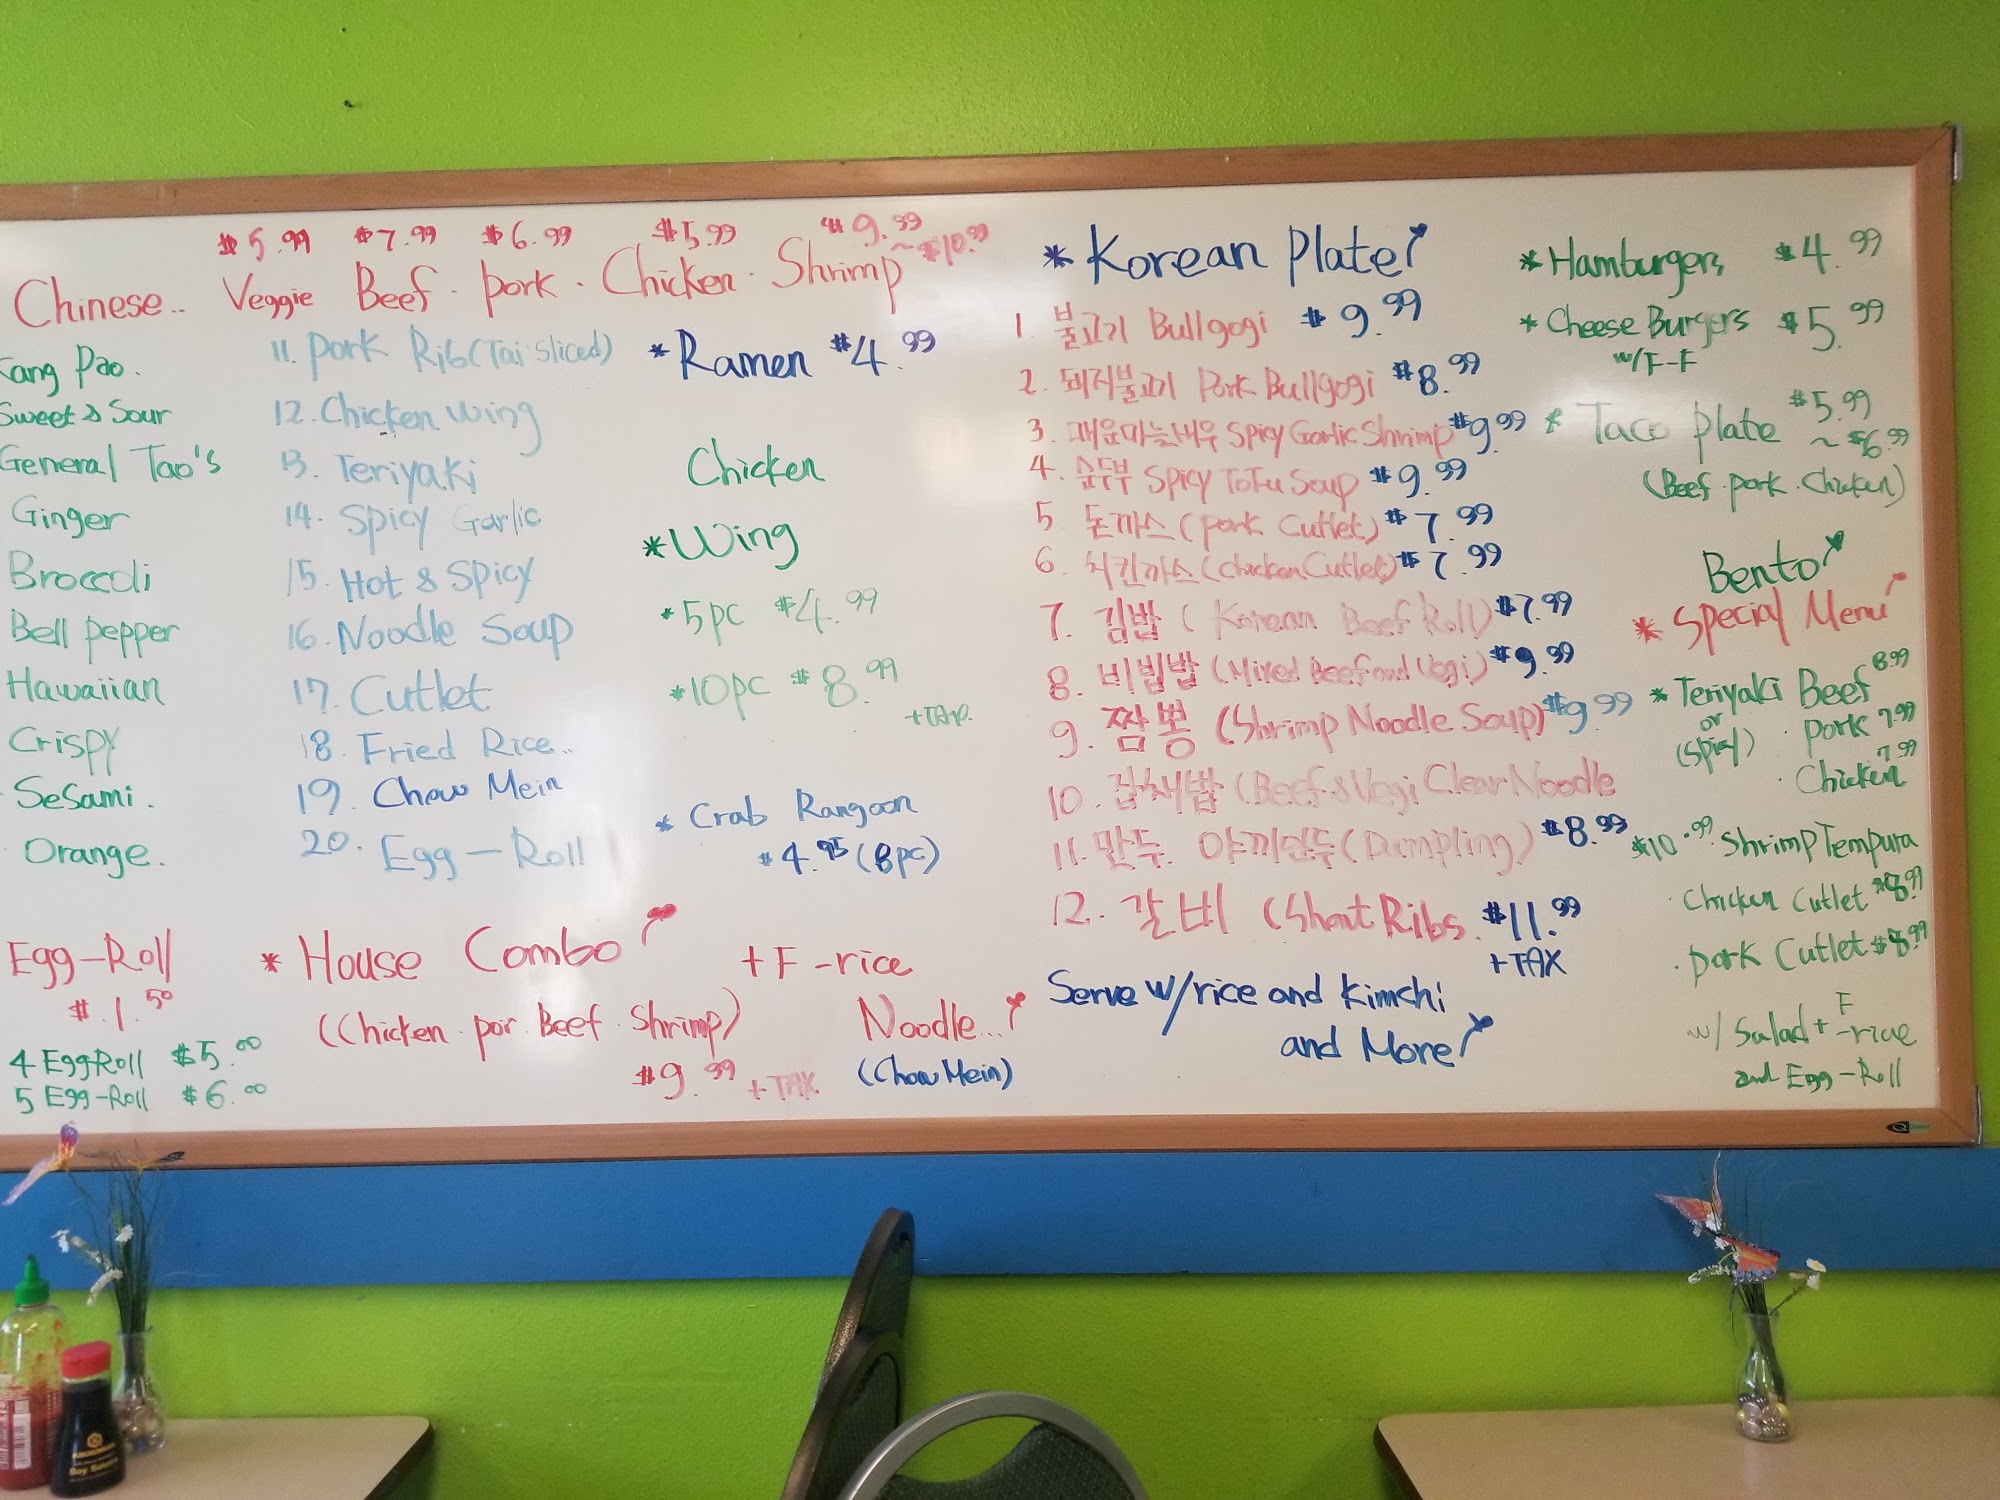 $5.99 $7.99 $6.99 $5.99 $9.99 ~ $10.99
Chinese.. Veggie Beef. pork. Chicken. Shrimp
Pao.
Sweet & Sour
General Tao's
Ginger
Broccoli
Bell pepper
Hawaiian
Crispy
SeSami.
Orange.
11. pork Rib (Tai sliced)
12. Chicken wing
13. Teriyaki
14. Spicy Garlic
15. Hot & Spicy
16. Noodle Soup
17. Cutlet
18. Fried Rice..
19. Chow Mein
20. Egg-Roll
* Ramen $4.99
Chicken
* Wing
* 5pc $4.99
* 10pc $8.99
+TAX
* Crab Rangoon
$4.95 (8pc)
Egg-Roll
$.1.50
4 EggRoll $5.00
5 Egg-Roll $6.00
* House Combo! + F-rice
(Chicken. por. Beef. Shrimp) Noodle...!
$9.99 +TAX (Chow Mein)
* Korean Plate!
1. 불고기 Bullgogi $9.99
2. 돼지불고기 Pork Bullgogi $8.99
3. 매운마늘새우 Spicy Garlic Shrimp $9.99
4. 순두부 Spicy ToFu Soup $9.99
5 돈까스 (pork Cutlet) $7.99
6. 치킨까스 (Chicken Cutlet) $7.99
7. 김밥 (Korean Beef Roll) $7.99
8. 비빔밥 (Mixed Beef and Vegi) $9.99
9. 짬뽕 (Shrimp Noodle Soup) $9.99
10. 잡채밥 (Beef & Vegi Clear Noodle
11. 만두. 야끼만두 (Dumpling) $8.99
12. 갈비 (Short Ribs. $11.99
+TAX
Serve w/rice and Kimchi
and More!
* Hamburgers $4.99
* Cheese Burgers $5.99
w/F-F
* Taco plate $5.99 ~ $6.99
(Beef. pork. Chicken)
Bento!
* Special Menu!
* Teriyaki Beef 8.99
or
(Spicy) . pork 7.99
. Chicken 7.99
$10.99 Shrimp Tempura
. Chicken Cutlet $8.99
. pork Cutlet $8.99
w/ Salad + F-rice
and Egg-Roll
Soy Sauce